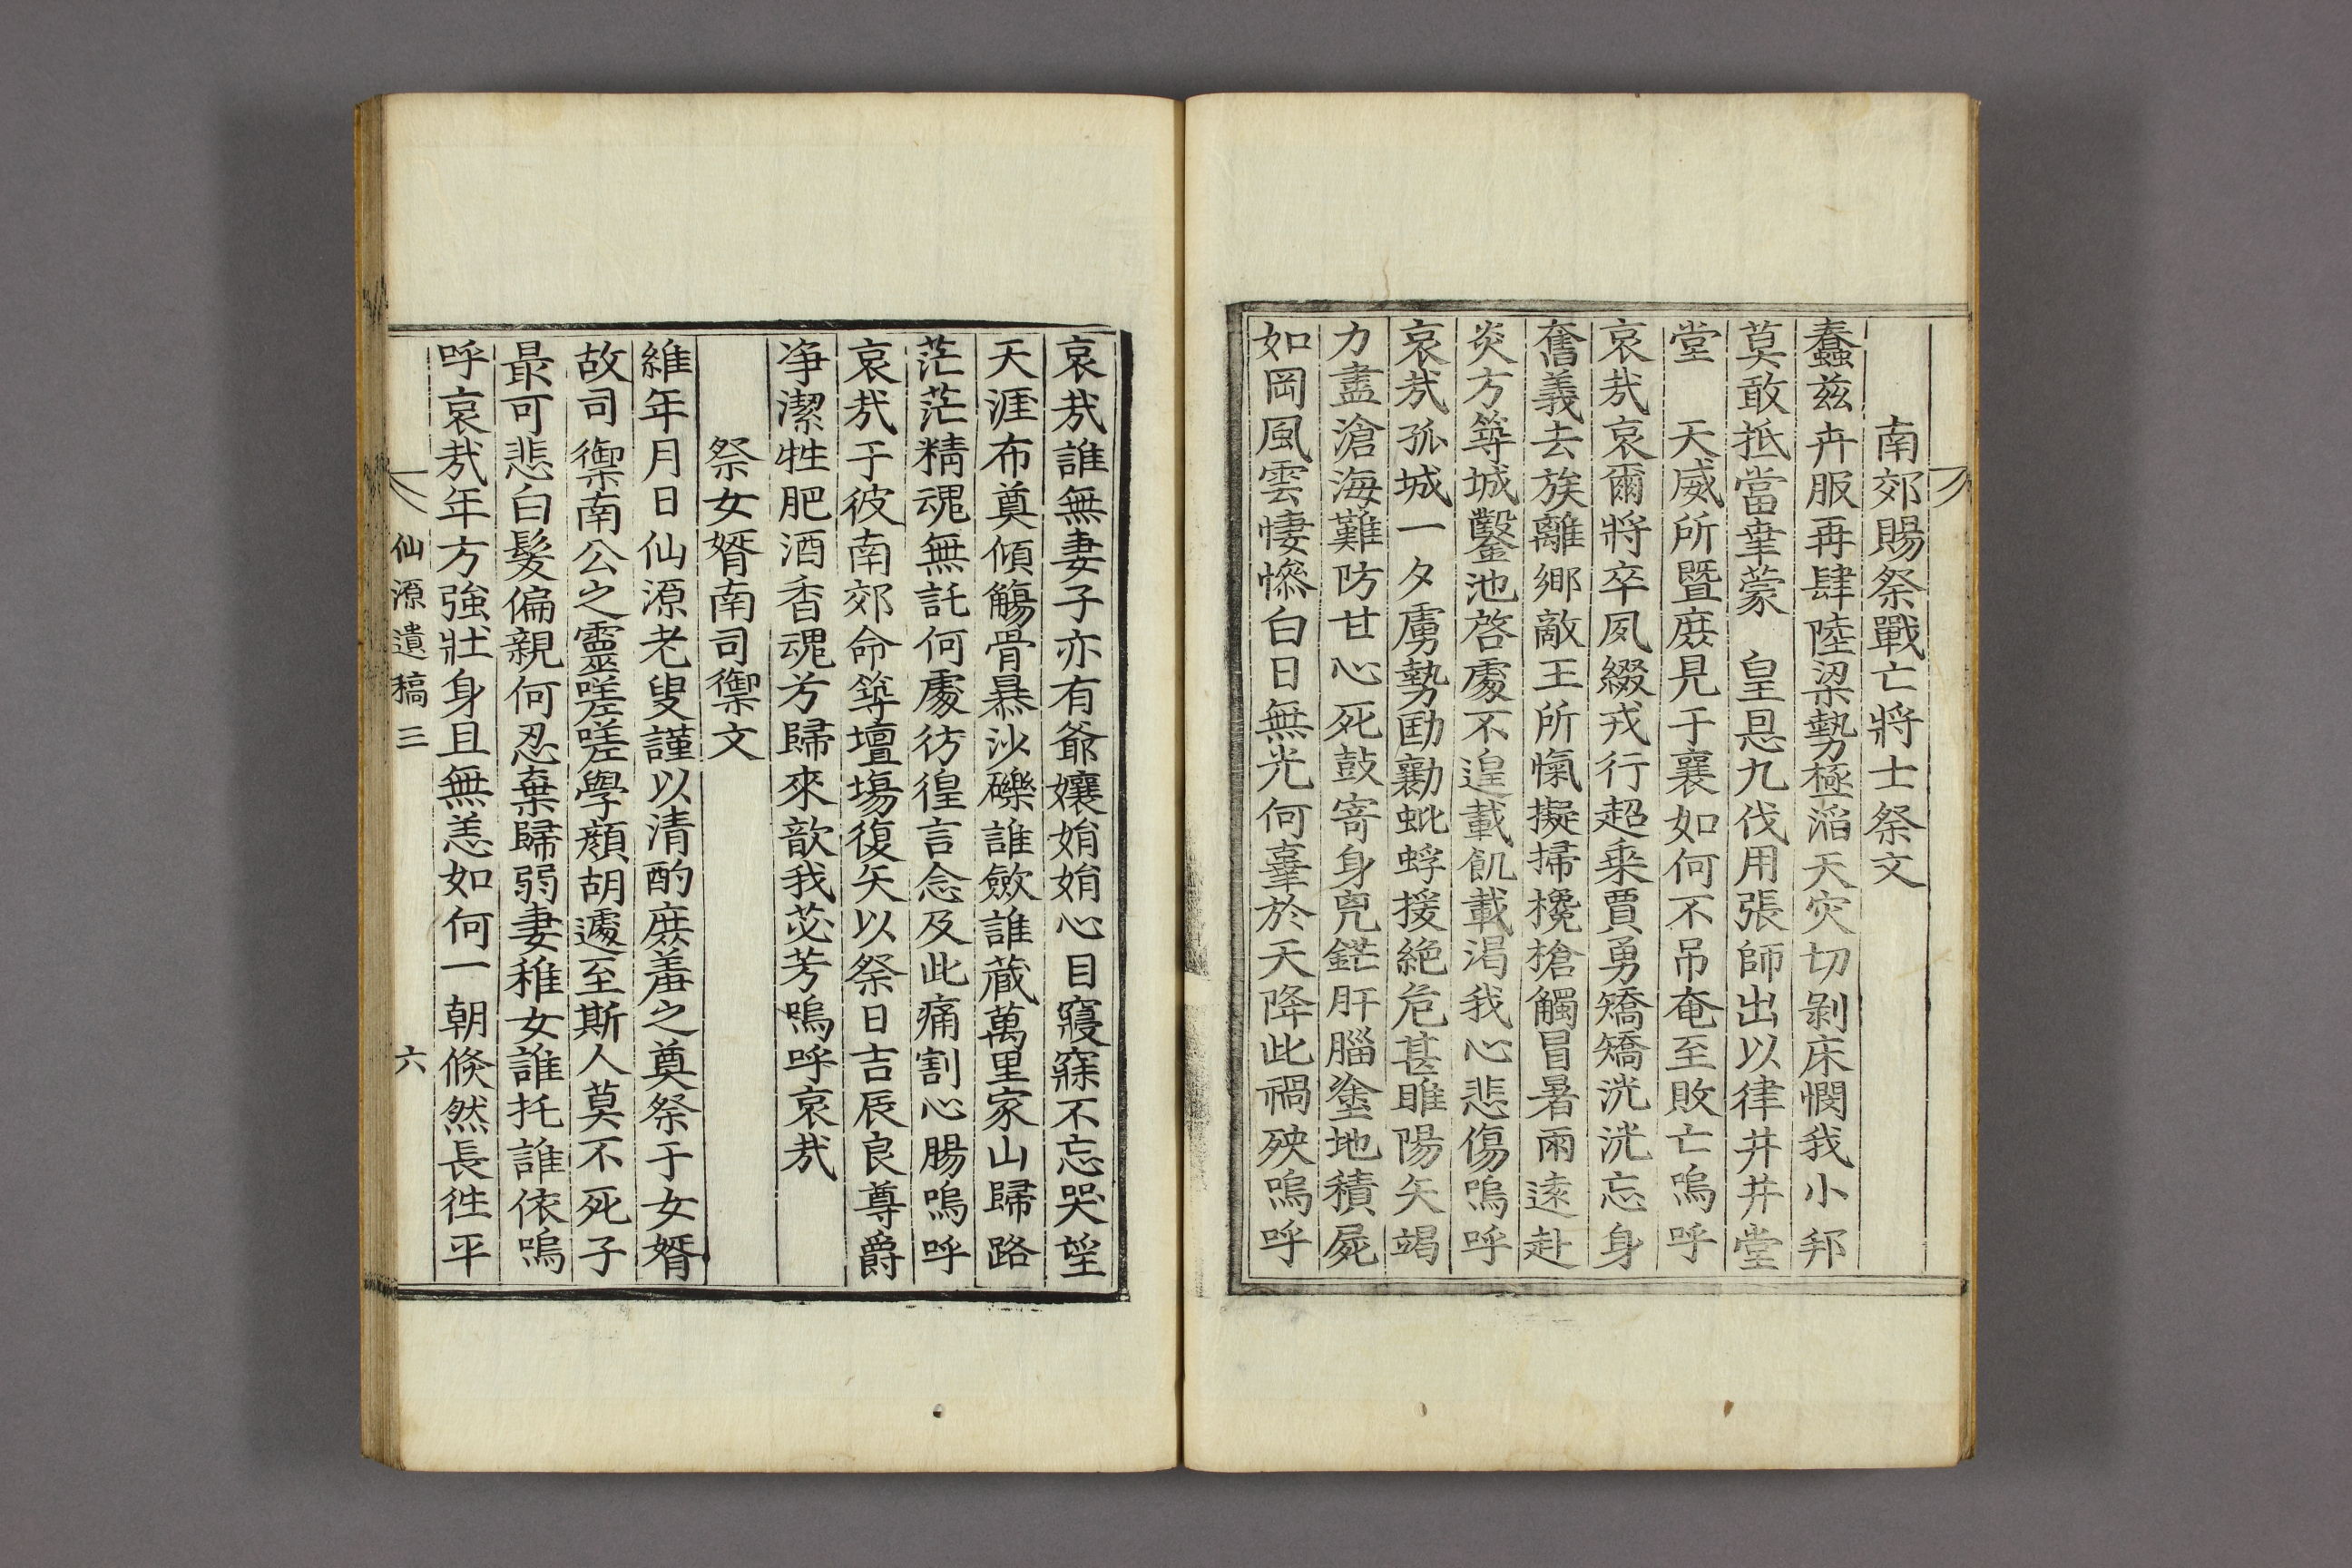 南郊賜祭戰亡將士祭文
蠢玆卉服再肆陸梁勢極滔天灾切剝床憫我小邦
莫敢抵當幸蒙　皇恩九伐用張師出以律井井堂
堂　天威所曁庶見于襄如何不吊奄至敗亡嗚呼
哀㦲哀爾將卒夙綴戎行超乘賈勇矯矯洸洸忘身
奮義去族離鄕敵王所愾擬掃欃槍觸冒暑雨遠赴
炎方築城鑿池啓處不遑載飢載渴我心悲傷嗚呼
哀㦲孤城一夕虜勢劻勷蚍蜉援絶危甚睢陽矢竭
力盡滄海難防甘心死鼓寄身兇鋩肝腦塗地積屍
如岡風雲悽慘白日無光何辜於天降此禍殃嗚呼
哀㦲誰無妻子亦有爺孃娟娟心目寢寐不忘哭望
天涯布奠傾觴骨暴沙礫誰斂誰蔵萬里家山歸路
茫茫精魂無託何處彷徨言念及此痛割心腸嗚呼
哀㦲于彼南郊命築壇場復矢以祭日吉辰良尊爵
净潔牲肥酒香魂兮歸來歆我苾芳嗚呼哀㦲
祭女婿南司禦文
維年月日仙源老叟謹以清酌庶羞之奠祭于女婿
故司禦南公之靈嗟嗟學顔胡遽至斯人莫不死子
最可悲白髮偏親何忍棄歸弱妻稚女誰托誰依嗚
呼哀㦲年方強壯身且無恙如何一朝倐然長徃平
仙源遺稿三　六